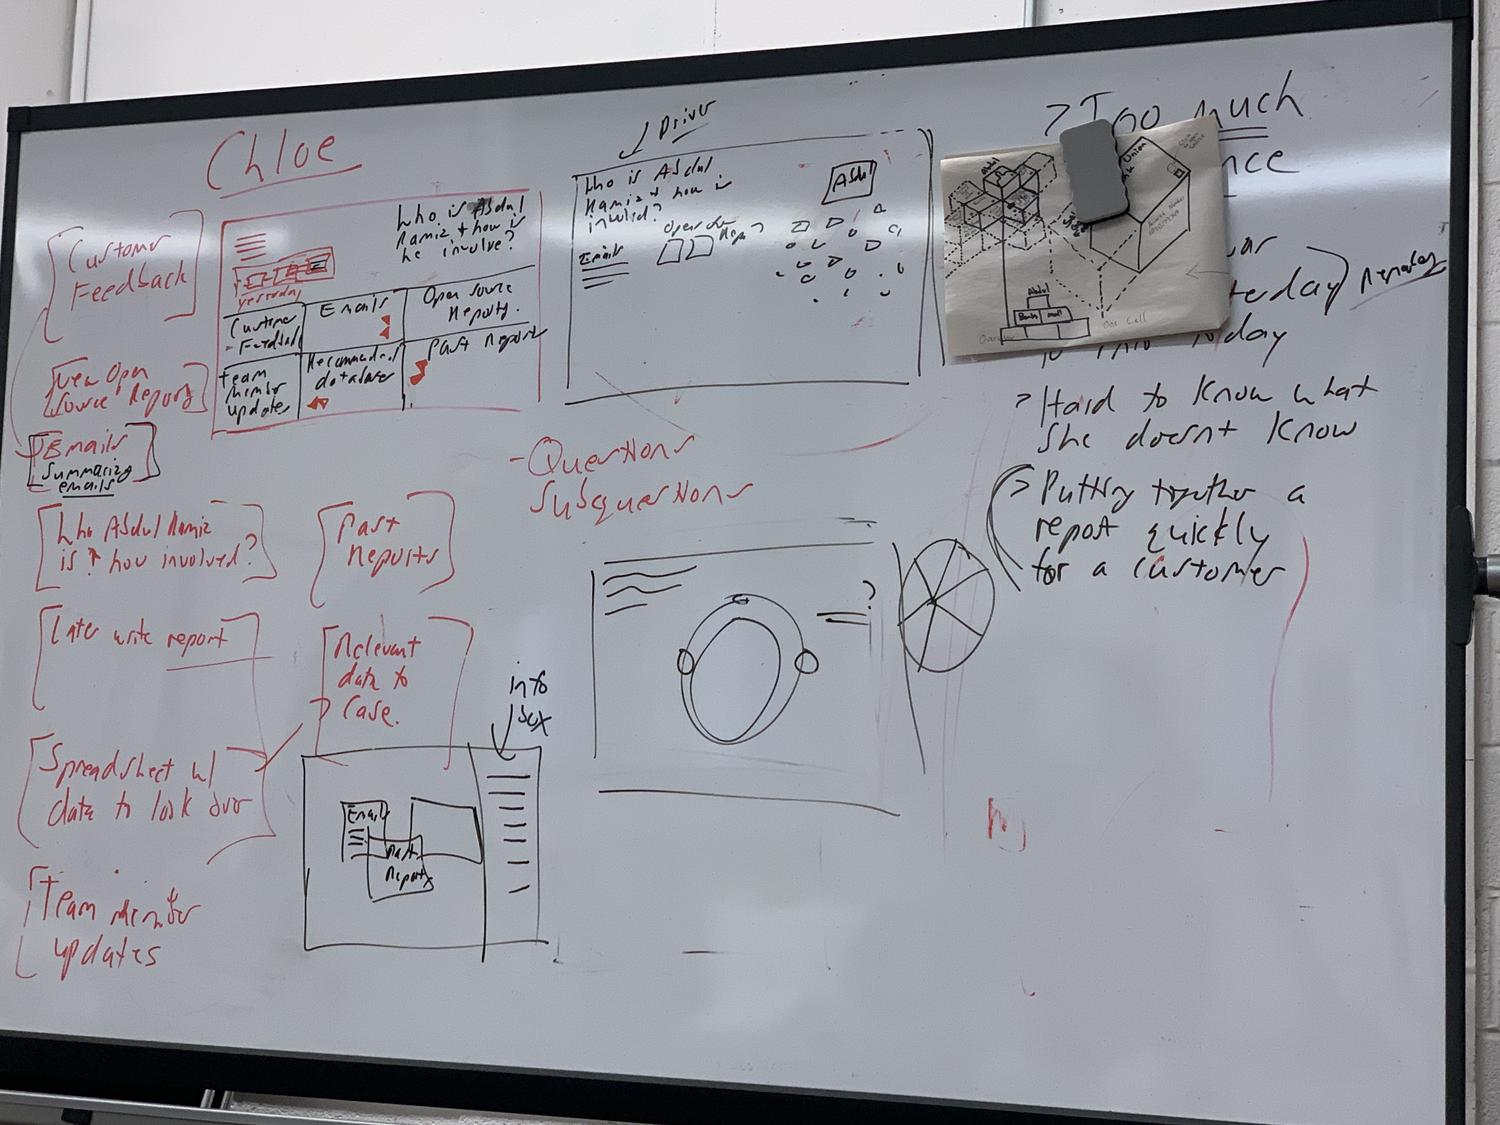 Chloe
[Customer
Feedback]
[View Open
Source Reports]
[Emails
Summarizing
emails]
[Who Abdul Ramiz
is + how involved?]
[Later write report]
[Spreadsheet w/
data to look over]
[Team Member
updates]
[Past
Reports]
[Relevant
data to
Case.]
Who is Abdul
Ramiz + how is
he involve?
yesterday
Customer
Feedback
Emails
Open Source
Reports.
Team
Member
updates
Recommended
databases
Past Reports
Driver
Who is Abdul
Ramiz + how is
involved?
Emails
Open Source
Repo
Abdul
- Questions
Subquestions
?
into
box
Emails
Past
Reports
> Too much
terday
today
> Hard to know what
She doesnt know
> Putting together a
report quickly
for a customer
Abdul
Union
Abdul
One Call